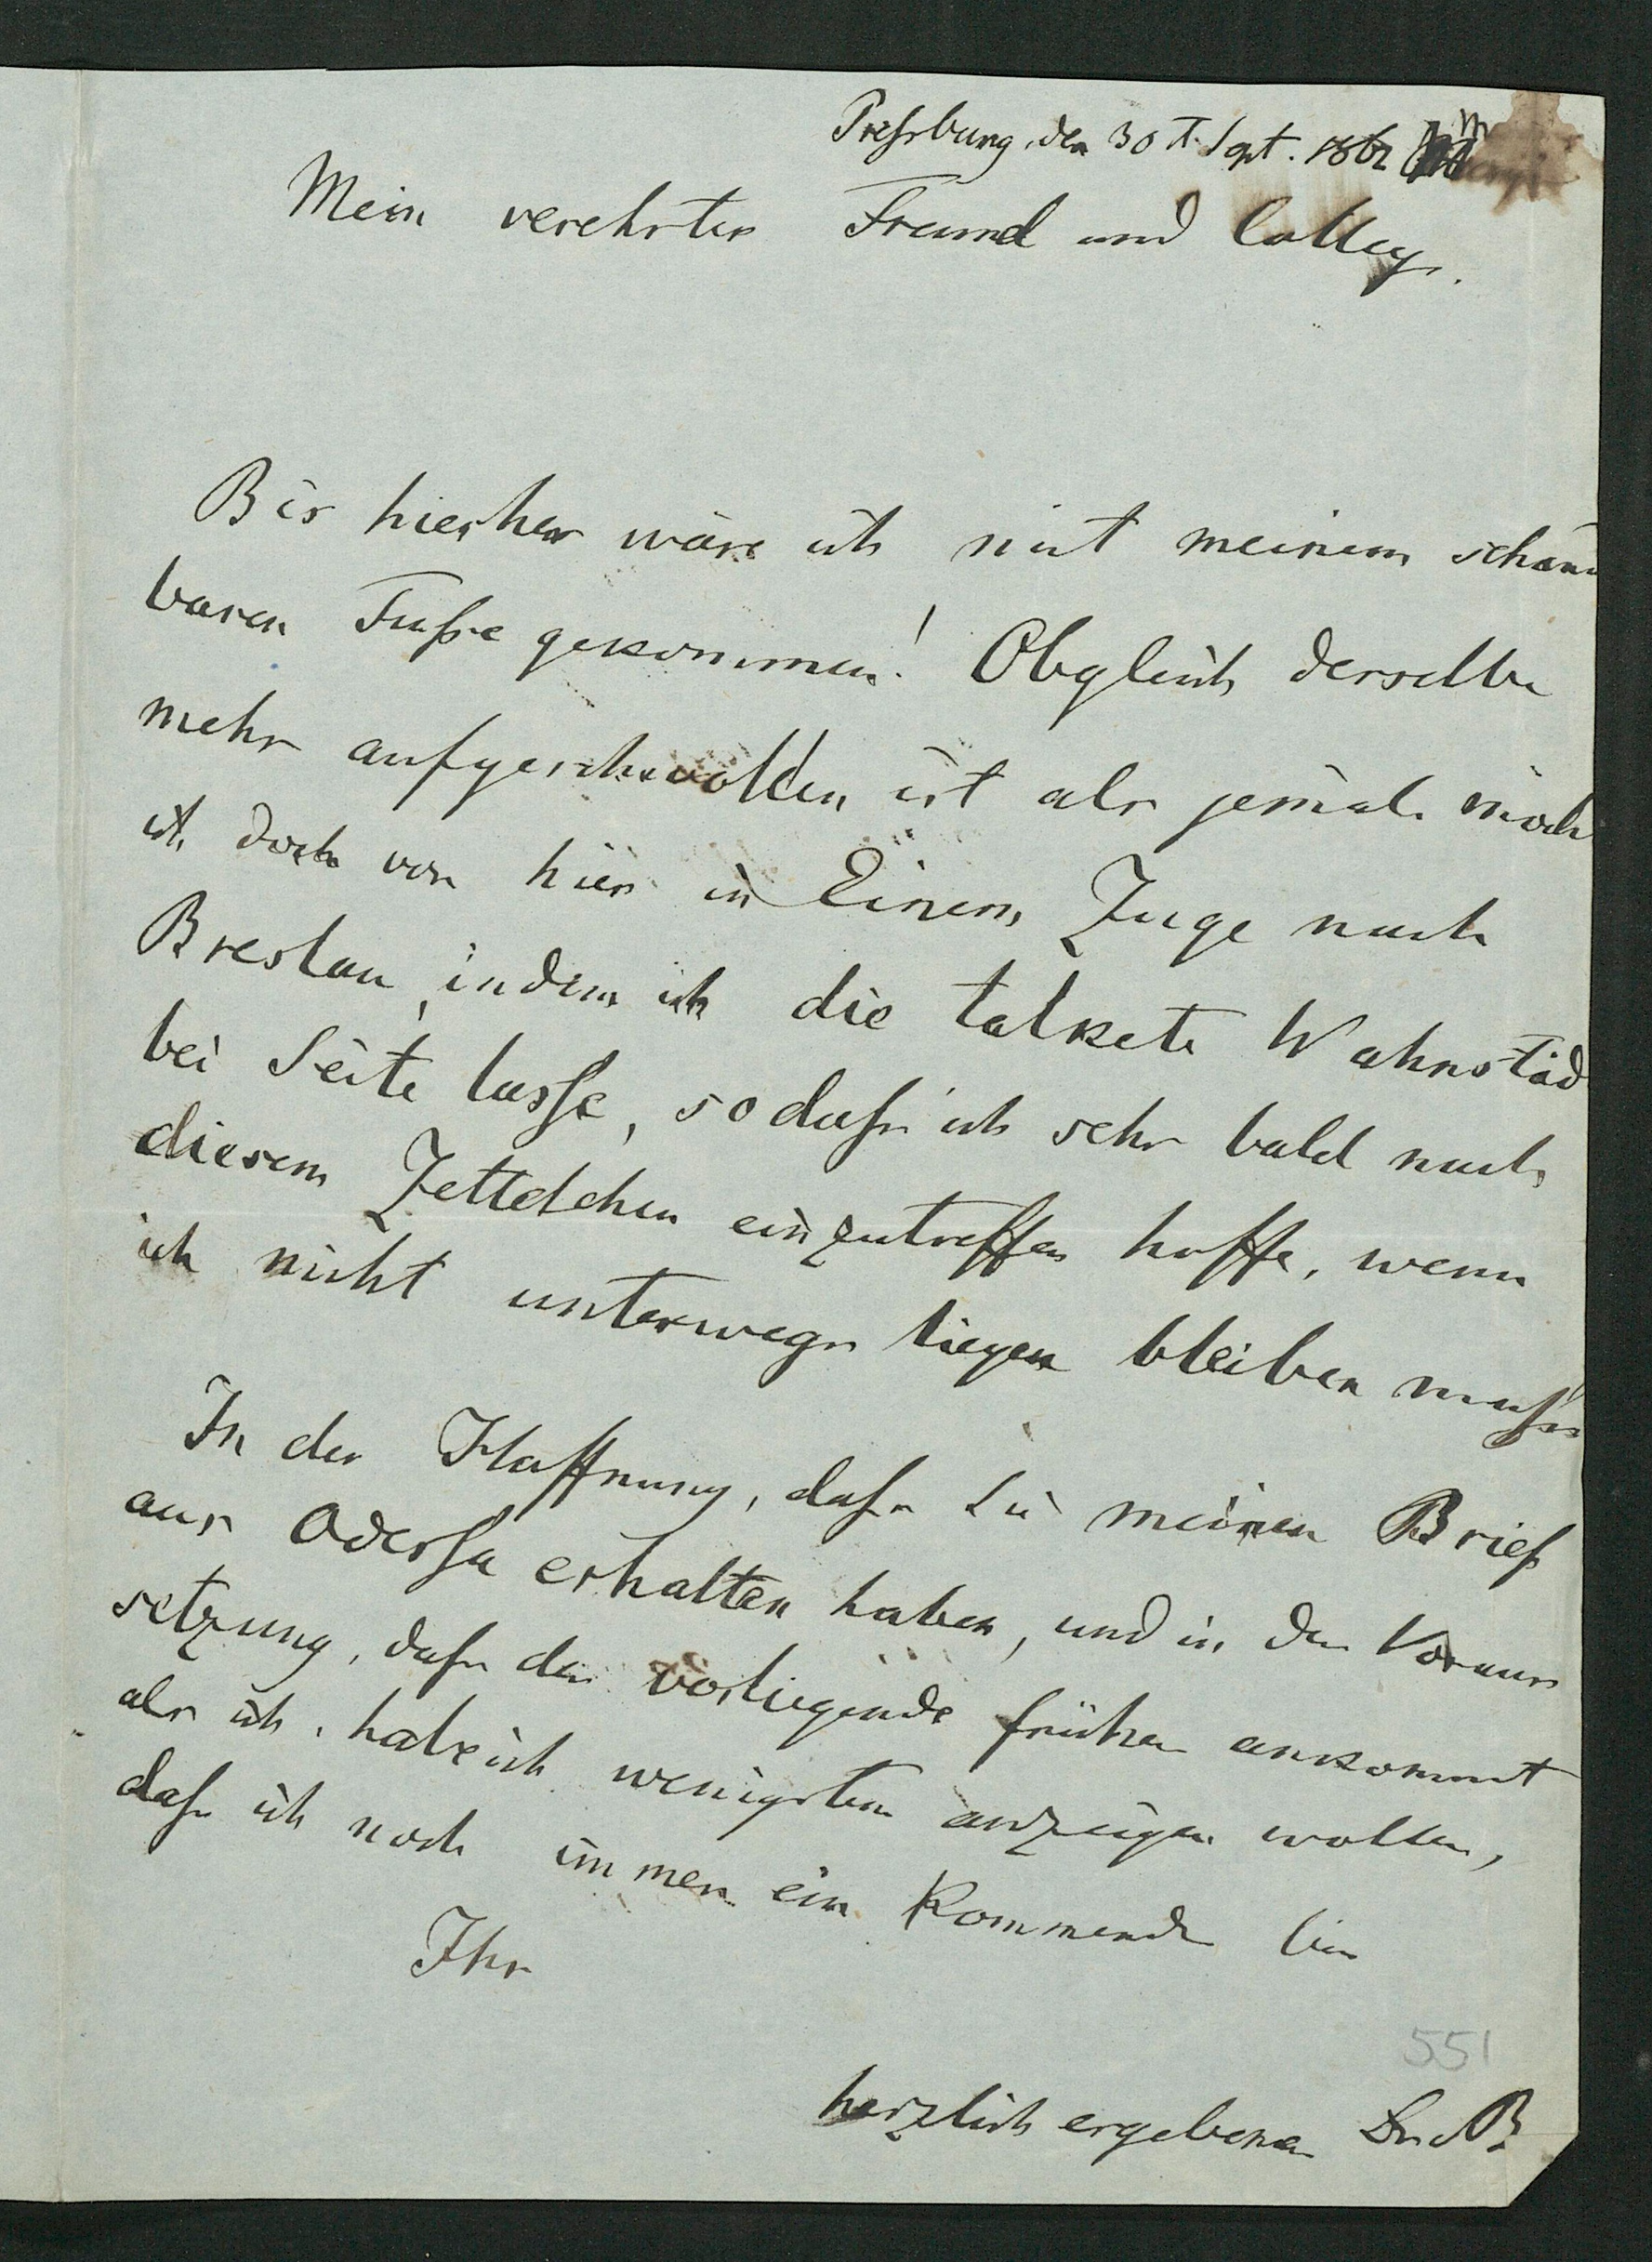 Pressburg, den 30 t. Sept. 1862
Mein verehrter Freund und Colleg.
Bis hierher wäre ich mit meinem schand
baren Fusse gekommen! Obgleich derselbe
mehr aufgeschwollen ist als jemals möch
ich doch von hier in Einem Zuge nach
Breslau, indem ich die talkete Wahnstad
bei Seite lasse, so dass ich sehr bald nach
diesem Zettelchen einzutreffen hoffe, wenn
ich nicht unterwegs liegen bleiben muss
In der Hoffnung, dass Sie meinen Brief
aus Odessa erhalten haben, und in der Voraus
setzung, dass der vorliegende früher ankommt
als ich, habe ich wenigstens anzeigen wollen,
dass ich noch immer ein Kommender bin
Ihr
551
herzlich ergebener Dr. B.